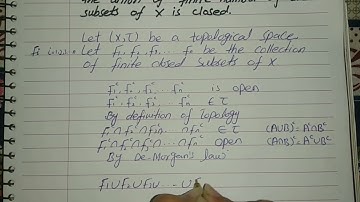 subsets of X is closed.
Let (X,τ) be a topalogical space
Let F₁ F₂ F₃ ... Fₙ be the collection
of finite closed Subsets of X
F₁ᶜ, F₂ᶜ, F₃ᶜ, ... Fₙᶜ is open
F₁ᶜ, F₂ᶜ, F₃ᶜ, ... Fₙᶜ ∈ τ
By definition of topology
F₁ᶜ∩F₂ᶜ∩F₃ᶜ∩ ... ∩Fₙᶜ ∈ τ (A∪B)ᶜ=Aᶜ∩Bᶜ
F₁ᶜ∩F₂ᶜ∩F₃ᶜ∩ ... ∩Fₙᶜ open (A∩B)ᶜ=Aᶜ∪Bᶜ
By De-Morgan's law
F₁∪F₂∪F₃∪ ... ∪F